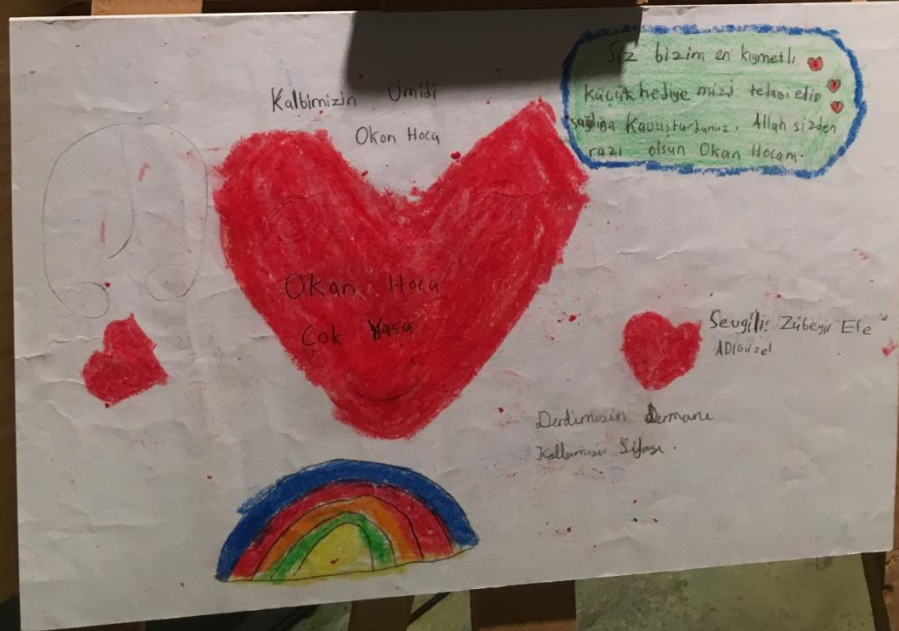 Kalbimizin Umidi
Okan Hoca
Siz bizim en kıymetli
küçük hediyemizi tedavi edip
sağlığına kavuşturdunuz. Allah sizden
razı olsun Okan Hocam.
Okan Hoca
Çok Yaşa
Sevgili: Zübeyir Efe
ADIGüzel
Derdimizin dermanı
Kalbimizin Şifası.